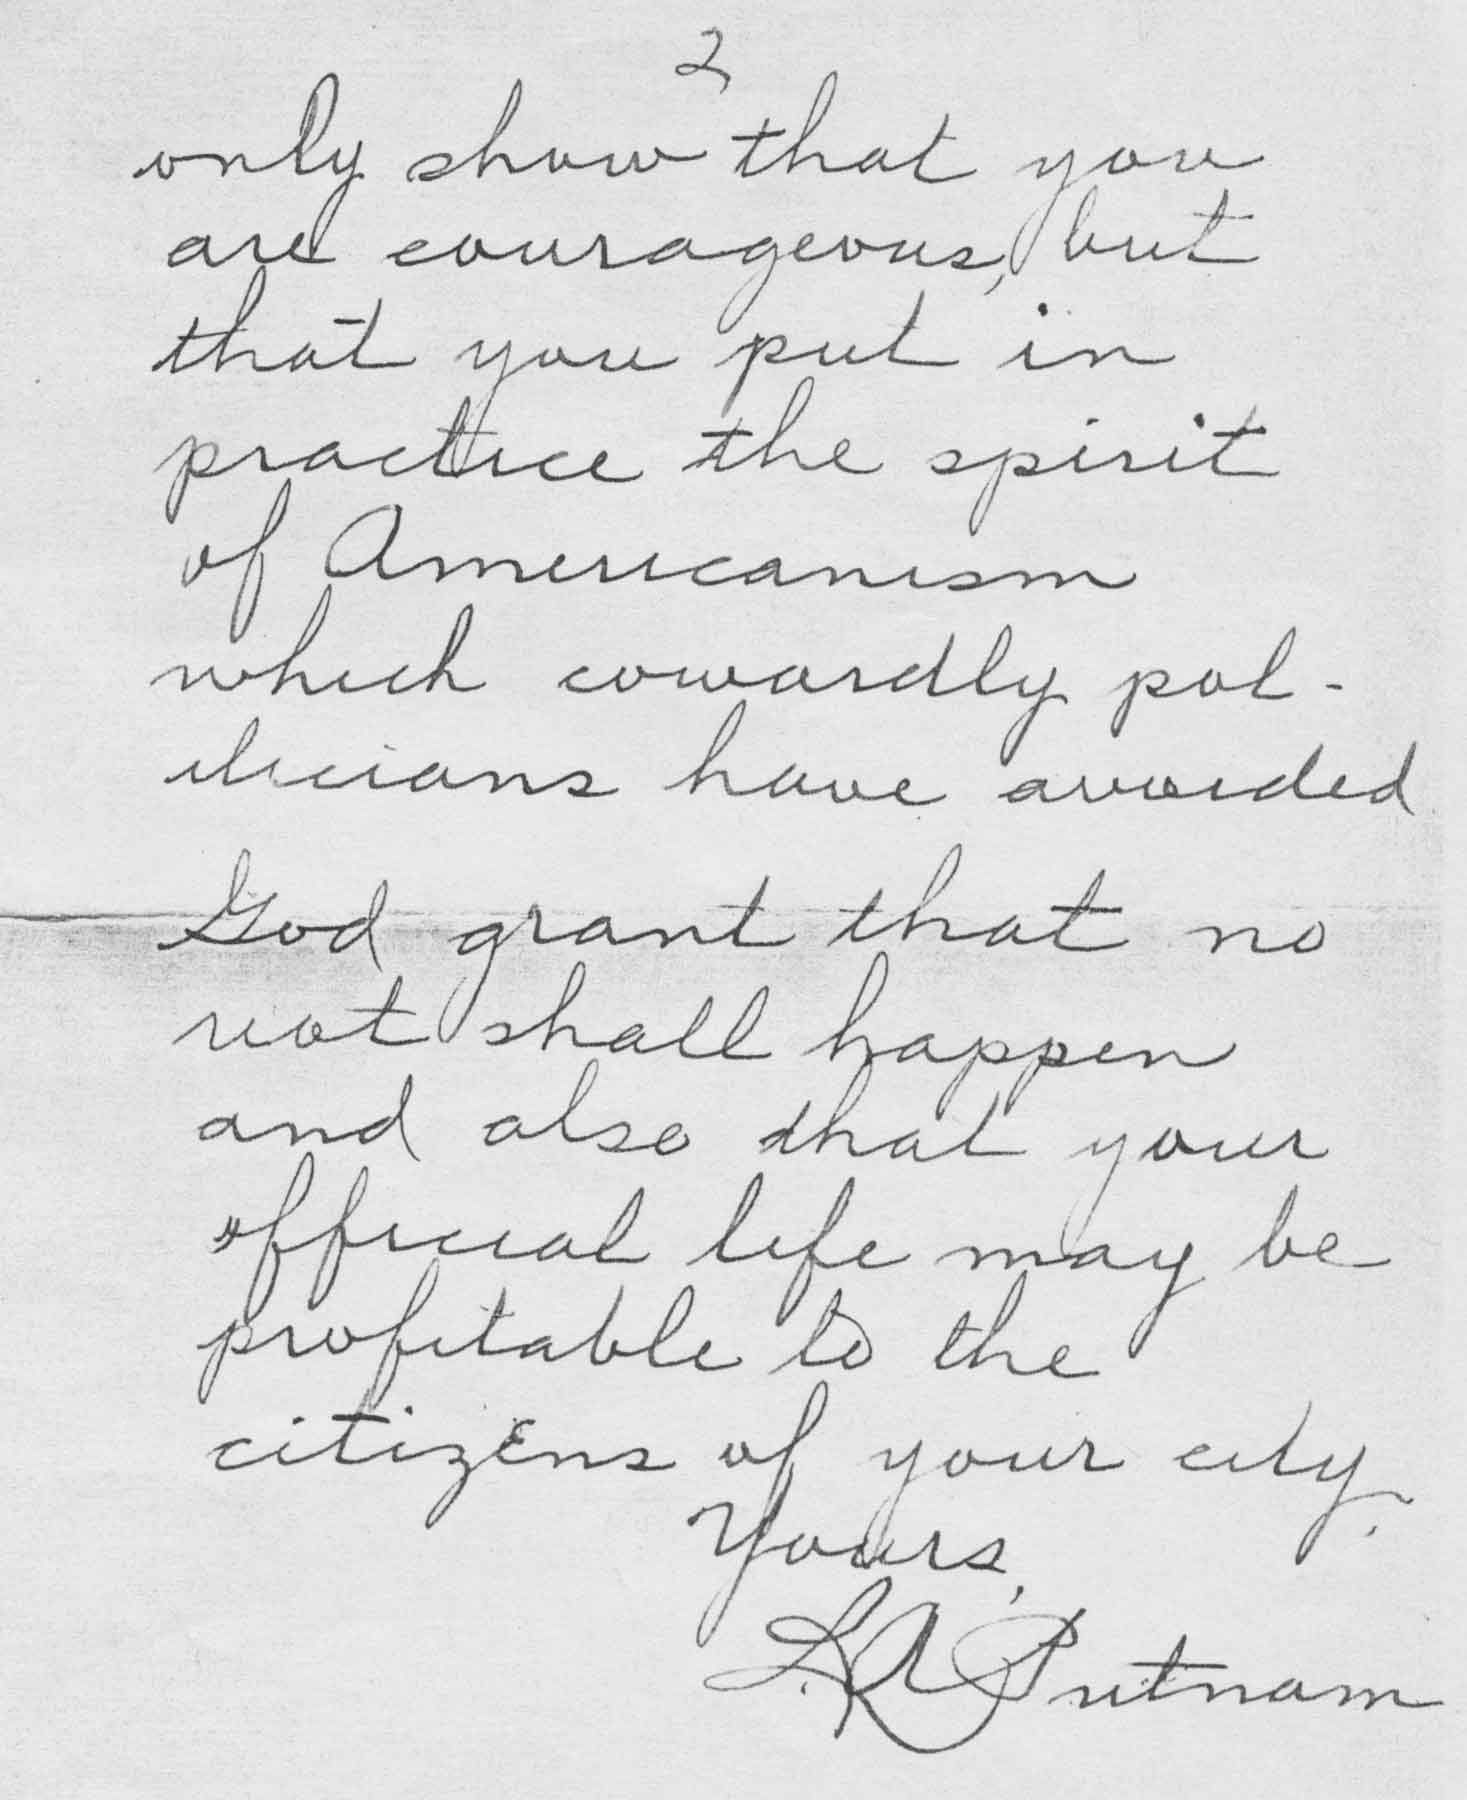 2
only show that you
are courageous, but
that you put in
practice the spirit
of Americanism
which cowardly pol-
iticians have avoided
God grant that no
riot shall happen
and also that your
official life may be
profitable to the
citizens of your city.
Yours,
L. A. Putnam